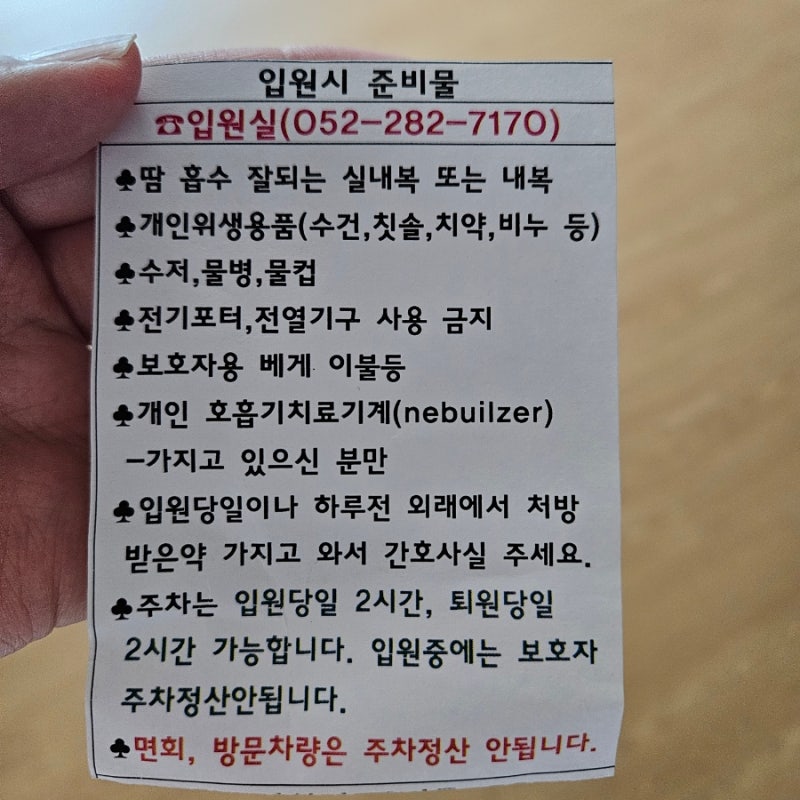 입원시 준비물
☎입원실(052-282-7170)
♣땀 흡수 잘되는 실내복 또는 내복
♣개인위생용품(수건,칫솔,치약,비누 등)
♣수저,물병,물컵
♣전기포터,전열기구 사용 금지
♣보호자용 베게 이불등
♣개인 호흡기치료기계(nebuilzer)
-가지고 있으신 분만
♣입원당일이나 하루전 외래에서 처방
받은약 가지고 와서 간호사실 주세요.
♣주차는 입원당일 2시간, 퇴원당일
2시간 가능합니다. 입원중에는 보호자
주차정산안됩니다.
♣면회, 방문차량은 주차정산 안됩니다.